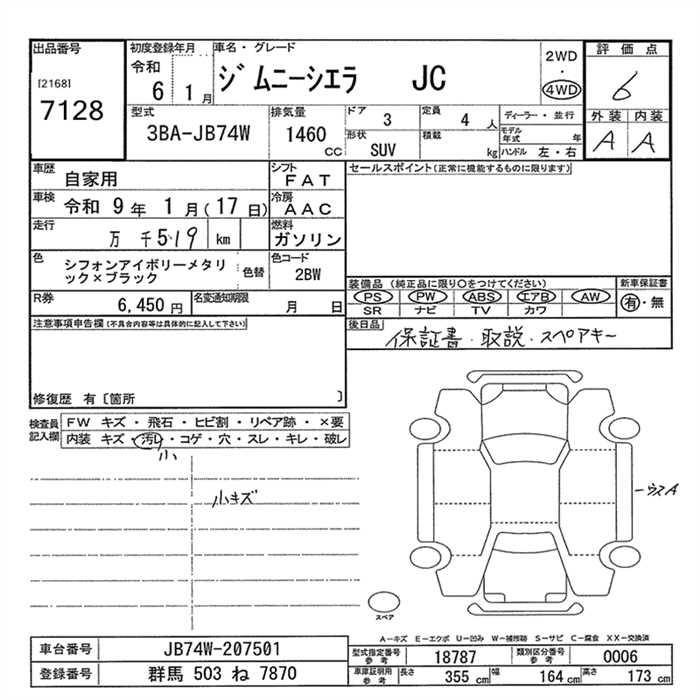 出品番号 初度登録年月 車名・グレード 2WD・4WD 評価点
[2168] 7128 令和 6 1月 ジムニーシエラ JC 6
型式 排気量 ドア 3 定員 4人 ディーラー・並行 外装 内装
3BA-JB74W 1460cc 形状 SUV 積載 kg モデル年式 年 ハンドル 左・右 A A
車歴 自家用 シフト FAT セールスポイント(正常に機能するものに限ります)
車検 令和 9年 1月(17日) 冷房 AAC
走行 万 千519 km 燃料 ガソリン
色 シフォンアイボリーメタリ 色替 色コード 2BW
ック×ブラック
装備品(純正品に限り○をつけてください) 新車保証書
PS PW ABS エアB AW 有・無
SR ナビ TV カワ
R券 6,450円 名変通知期限 月 日
後日品 保証書・取説・スペアキー
注意事項申告欄(不具合内容等は具体的に記入して下さい)
修復歴 有〔箇所 〕
検査員記入欄 FW キズ・飛石・ヒビ割・リペア跡・×要
内装 キズ・汚れ・コゲ・穴・スレ・キレ・破レ
小
小キズ
ウスA
スペア
A-キズ E-エクボ U-凹み W-補修跡 S-サビ C-腐食 XX-交換済
車台番号 JB74W-207501 型式指定番号 参考 18787 類別区分番号 参考 0006
登録番号 群馬 503 ね 7870 車庫証明用 参考 長さ 355cm 幅 164cm 高さ 173cm